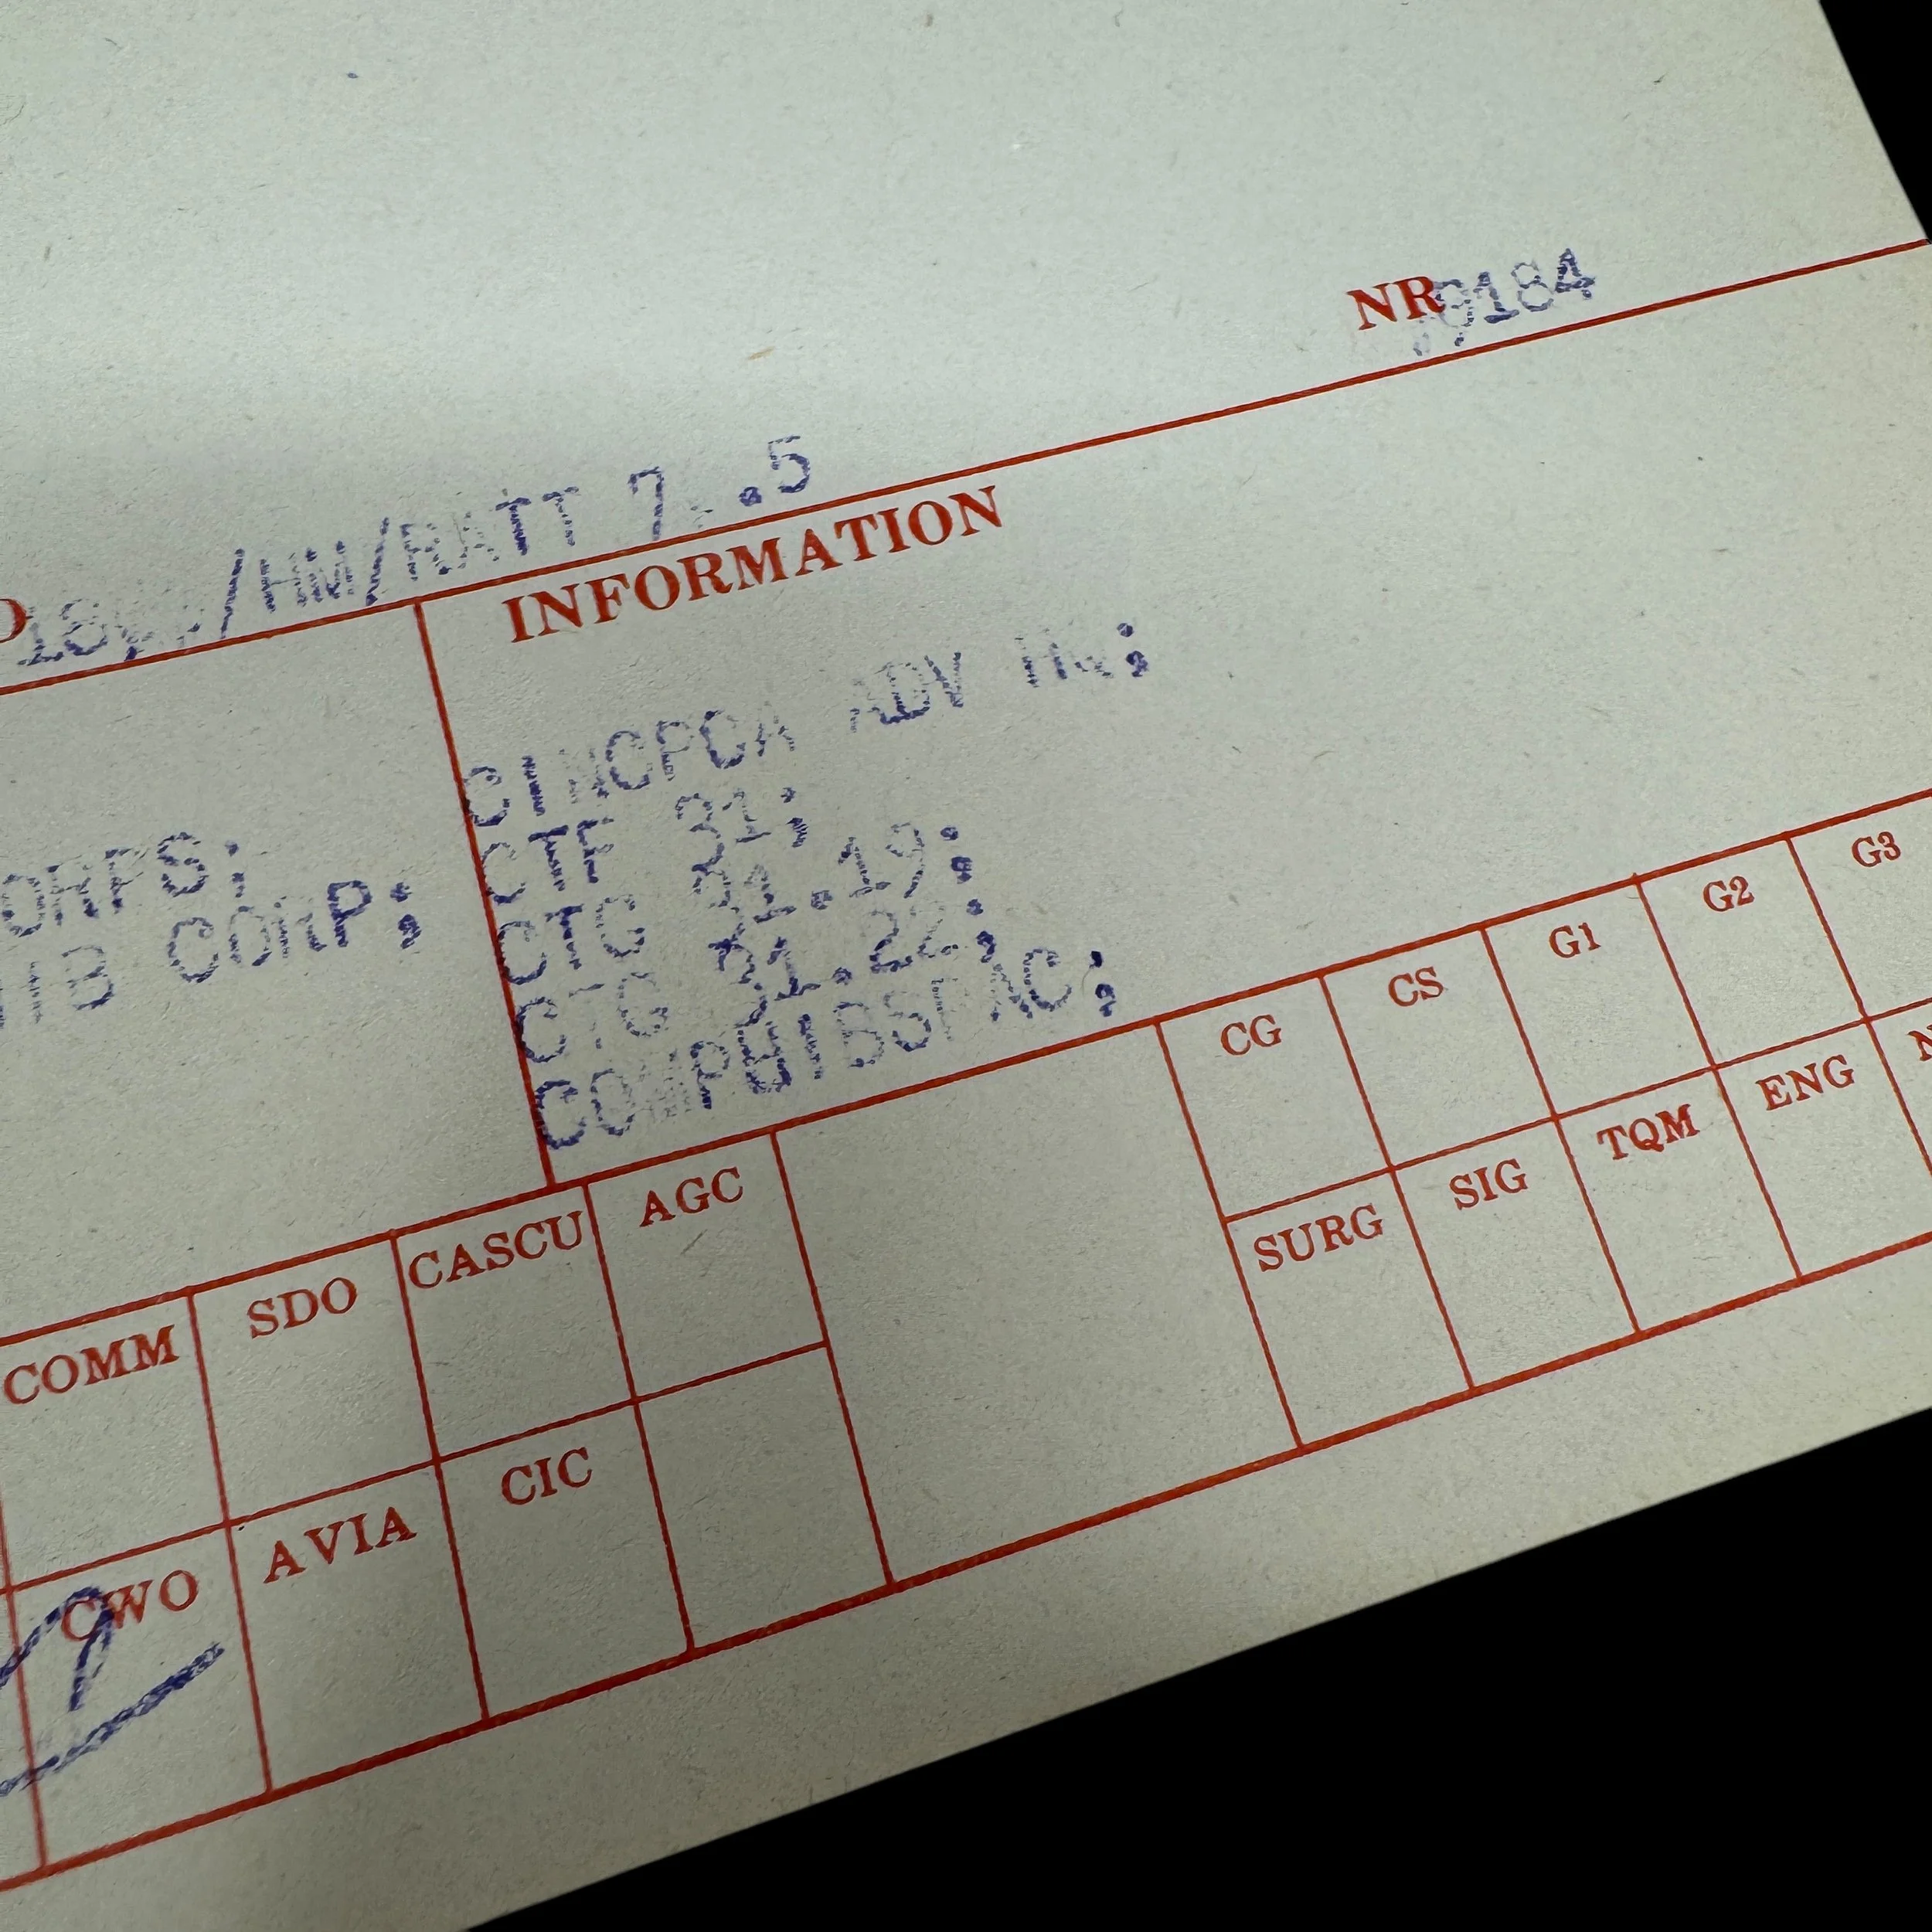 NR 9184
/HM/RATT 7 .5
INFORMATION
CINCPOA ADV HQ;
CTF 31;
CTG 31.19;
ORPS;
CTG 31.22;
HIB CORP;
COMPHIBSPAC;
CG CS G1 G2 G3
COMM SDO CASCU AGC
SURG SIG TQM ENG
CWO AVIA CIC